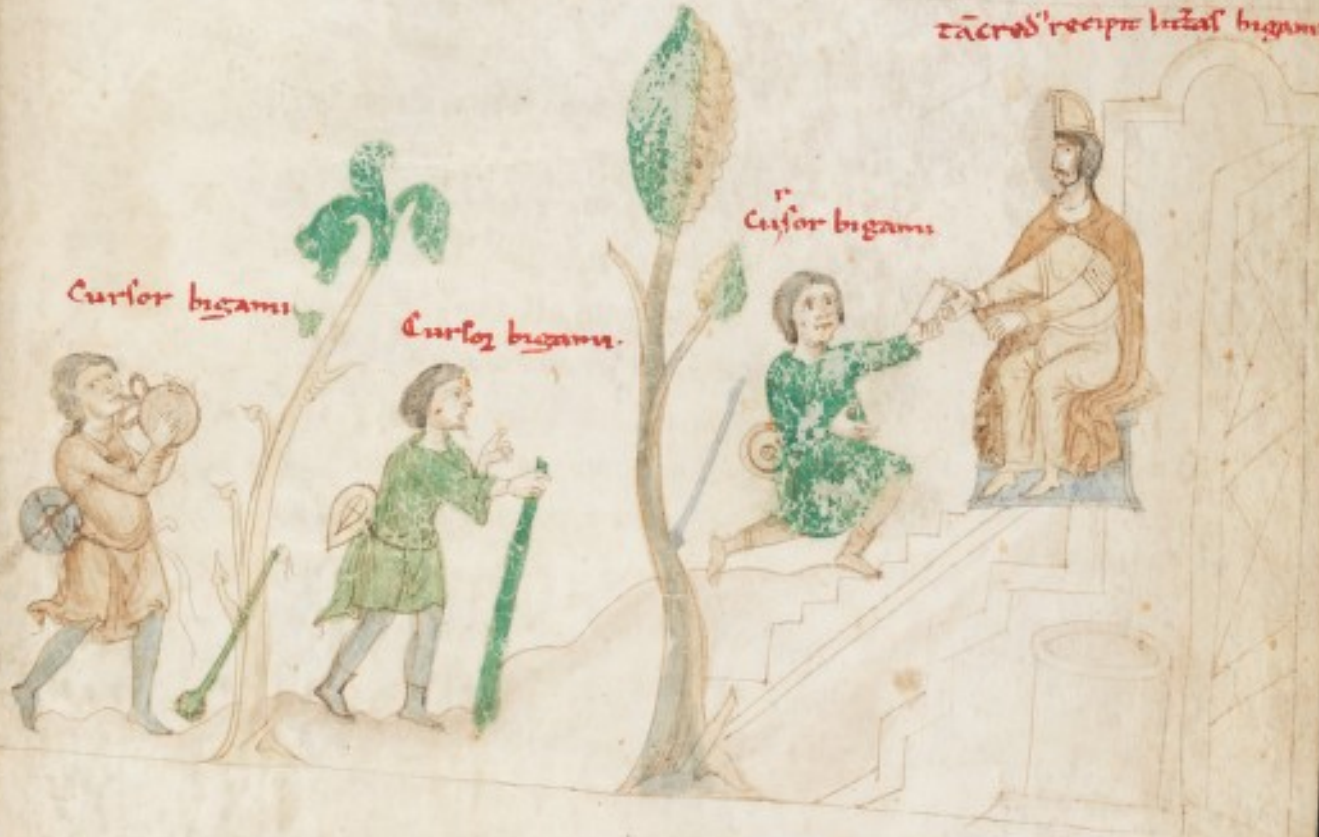 tācred' recipit litt̄as bigami
Cursor bigami
Cursor bigami
Cursor bigami.